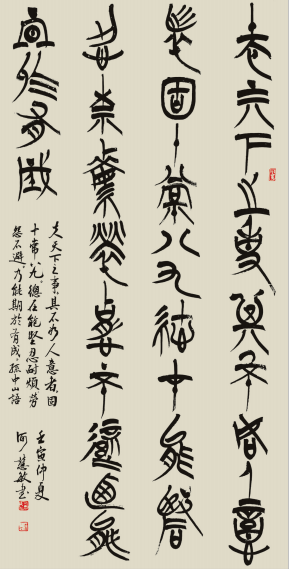 夫天下之事其不如人意
者固十常八九總在能堅
忍耐煩勞怨不避乃能
期於有成
夫天下之事其不如人意者固
十常八九總在能堅忍耐煩勞
怨不避乃能期於有成孫中山語
壬寅仲夏
何慧敏書